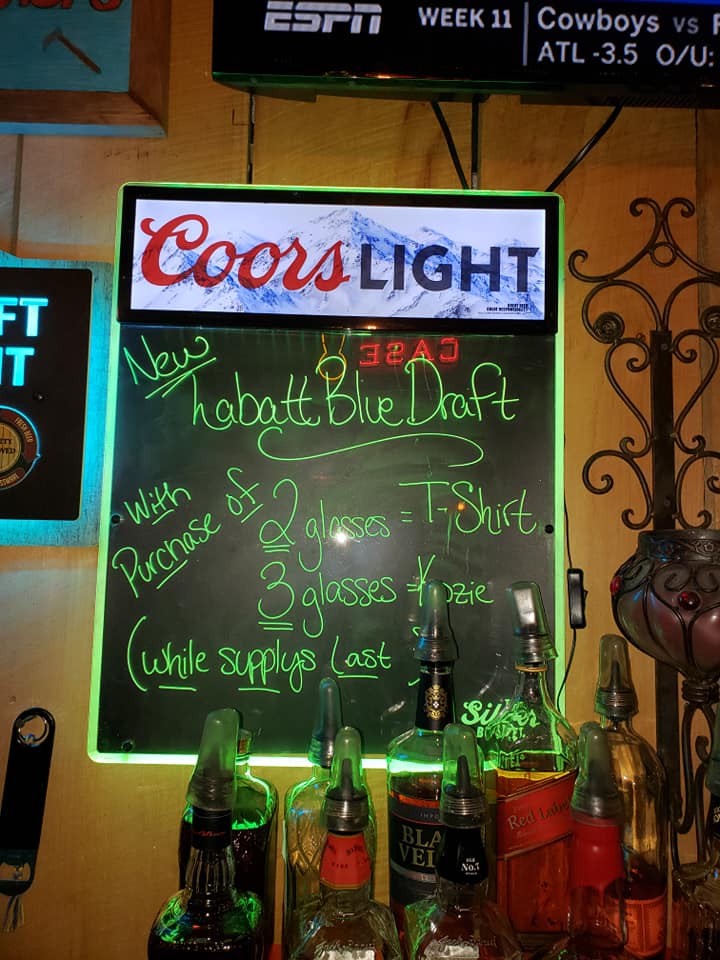 ESPN
WEEK 11
Cowboys vs
ATL -3.5 O/U:
Coors LIGHT
CASE
New
Labatt Blue Draft
With Purchase of
2 glasses = T-Shirt
3 glasses = Kozie
(while supplys Last )
Silver
BULLET.
FT
IT
Red Label
BLA
VEL
No.7